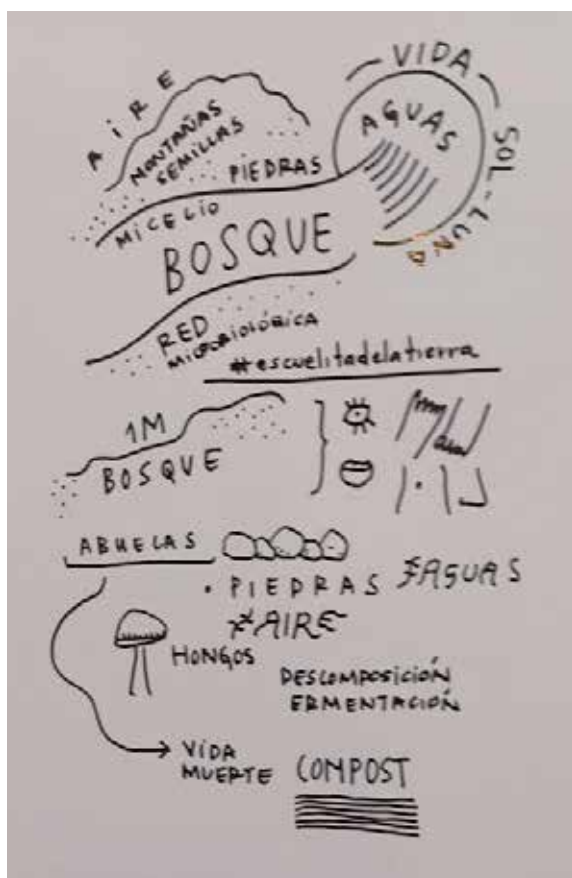 AiRE
VIDA
SOL-LUNA
AGUAS
MONTAÑAS
SEMILLAS
PIEDRAS
MICELIO
BOSQUE
RED
MICROBIOLÓGICA
#escuelitadelatierra
1M
BOSQUE
ABUELAS
PIEDRAS
AGUAS
AIRE
HONGOS
DESCOMPOSICIÓN
ERMENTACIÓN
VIDA
MUERTE
COMPOST